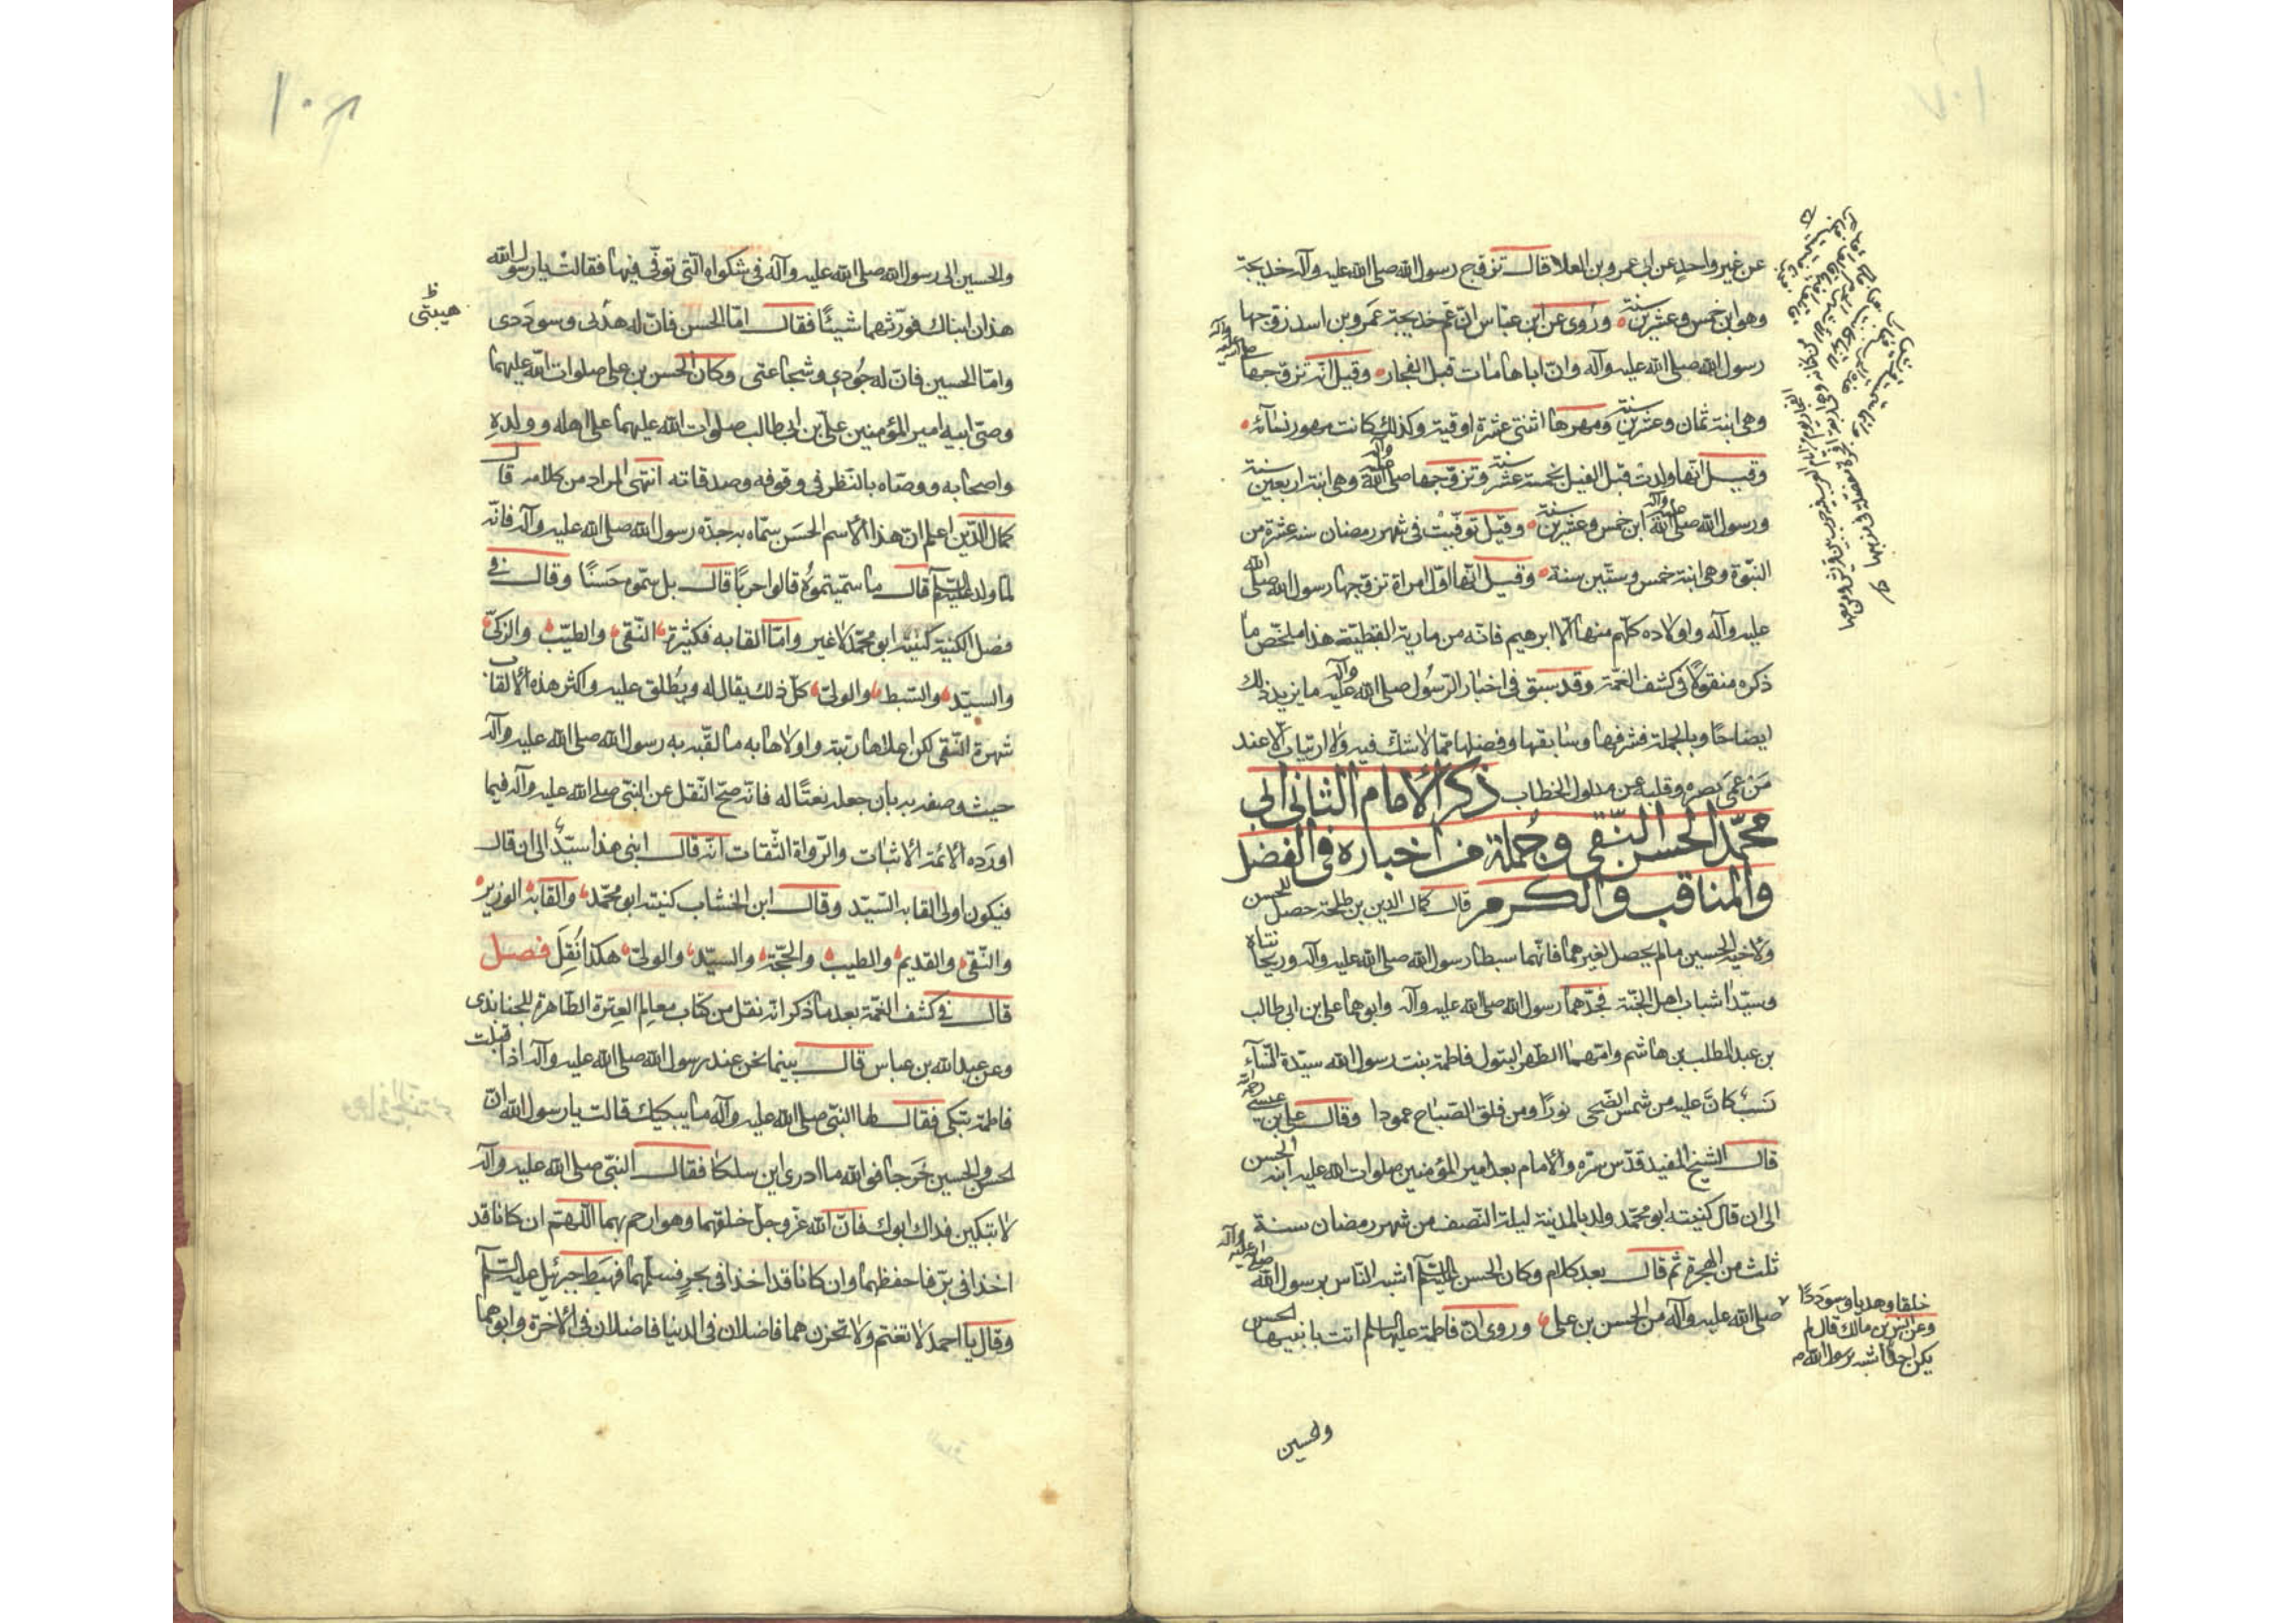 عن غير واحد عن ابى عمرو بن العلا قال تزوج رسول الله صلى الله عليه وآله خديجة
وهو ابن خمس وعشرين سنة وروى عن ابن عباس ان عم خديجة عمرو بن اسد زوجها
رسول الله صلى الله عليه وآله وان اباها مات قبل الفجار وقيل انه تزوجها صلى الله عليه وآله
وهى ابنة ثمان وعشرين سنة ومهرها اثنتى عشرة اوقية وكذلك كانت مهور نسائه
وقيل انها ولدت قبل الفيل بخمسة عشر سنة وتزوجها صلى الله عليه وآله وهى ابنة اربعين سنة
ورسول الله صلى الله عليه وآله ابن خمس وعشرين سنة وقيل توفيت فى شهر رمضان سنة عشرة من
النبوة وهى ابنة خمس وستين سنة وقيل انها اول امراة تزوجها رسول الله صلى الله
عليه وآله واولاده كلهم منها الا ابرهيم فانه من مارية القبطية هذا ملخص ما
ذكره منقولا فى كشف الغمة وقد سبق فى اخبار الرسول صلى الله عليه وآله ما يزيد ذلك
ايضاحا وبالجملة فشرفها وسابقها وفضلها مما لا شك فيه ولا ارتياب الا عند
من عمى بصره وقلبه عن مدلول الخطاب ذكر الامام الثانى ابى
محمد الحسن النقى وجملة من اخباره فى الفضل
والمناقب والكرم قال كمال الدين بن طلحة حصل للحسن
ولاخيه الحسين ما لم يحصل لغيرهما فانهما سبطا رسول الله صلى الله عليه وآله وريحانتاه
وسيدا شباب اهل الجنة فجدهما رسول الله صلى الله عليه وآله وابوهما على بن ابى طالب
بن عبد المطلب بن هاشم وامهما الطهر البتول فاطمة بنت رسول الله سيدة النساء
نسب كان عليه من شمس الضحى نورا ومن فلق الصباح عمودا وقال على بن عيسى رحمه الله
قال الشيخ المفيد قدس سره والامام بعد امير المؤمنين صلوات الله عليه ابنه الحسن
الى ان قال كنيته ابو محمد ولد بالمدينة ليلة النصف من شهر رمضان سنة
ثلث من الهجرة ثم قال بعد كلام وكان الحسن عليه السلم اشبه الناس برسول الله صلى الله عليه وآله
خلقا وهديا وسوددا
وعن انس بن مالك قال لم
يكن احد اشبه برسول الله
صلى الله عليه وآله من الحسن بن على وروى ان فاطمة عليها السلم اتت بابنيها الحسن
والحسين
١٠٧
والحسين الى رسول الله صلى الله عليه وآله فى شكواه التى توفى فيها فقالت يا رسول الله
هذان ابناك فورثهما شيئا فقال اما الحسن فان له هدى وسوددى
هيبتى ظ
واما الحسين فان له جودى وشجاعتى وكان الحسن بن على صلوات الله عليهما
وصى ابيه امير المؤمنين على بن ابى طالب صلوات الله عليهما على اهله وولده
واصحابه ووصاه بالنظر فى وقوفه وصدقاته انتهى المراد من كلامه قال
كمال الدين اعلم ان هذا الاسم الحسن سماه به جده رسول الله صلى الله عليه وآله فانه
لما ولد عليه السلم قال ما سميتموه قالوا حربا قال بل سموه حسنا وقال فى
فصل الكنية كنيته ابو محمد لا غير واما القابه فكثيرة النقى والطيب والزكى
والسيد والسبط والولى كل ذلك يقال له ويطلق عليه واكثر هذه الالقاب
شهرة النقى لكن اعلاها رتبة واولاها به ما لقبه به رسول الله صلى الله عليه وآله
حيث وصفه به بان جعله نعتا له فانه صح النقل عن النبى صلى الله عليه وآله فيما
اورده الائمة الاثبات والرواة الثقات انه قال ابنى هذا سيد الى ان قال
فيكون اولى القابه السيد وقال ابن الخشاب كنيته ابو محمد والقابه الوزير
والنقى والقديم والطيب والحجة والسيد والولى هكذا نقل فصل
قال فى كشف الغمة بعد ما ذكر انه نقل من كتاب معالم العترة الطاهرة للجنابذى
وعن عبد الله بن عباس قال بينما نحن عند رسول الله صلى الله عليه وآله اذ اقبلت
فاطمة تبكى فقال لها النبى صلى الله عليه وآله ما يبكيك قالت يا رسول الله ان
لحسن والحسين خرجا فوالله ما ادرى اين سلكا فقال النبى صلى الله عليه وآله
لا تبكين فداك ابوك فان الله عز وجل خلقهما وهو ارحم بهما اللهم ان كانا قد
اخذا فى بر فاحفظهما وان كانا قد اخذا فى بحر فسلمهما فهبط جبرئيل عليه السلم
وقال يا احمد لا تغتم ولا تحزن هما فاضلان فى الدنيا فاضلان فى الاخرة وابوهما